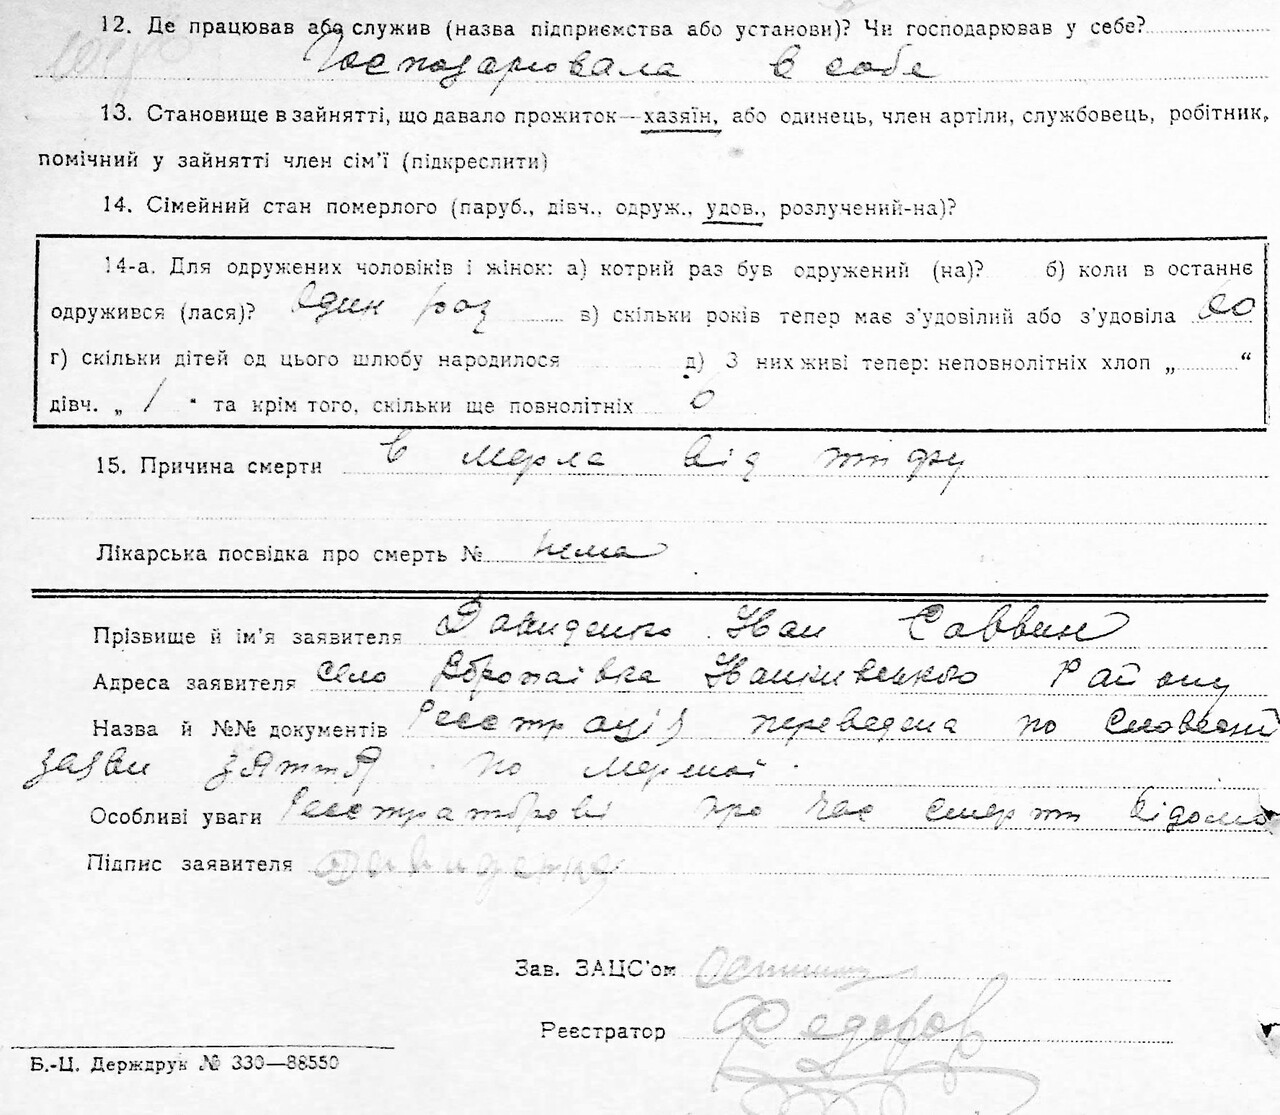 12. Де працював або служив (назва підприємства або установи)? Чи господарював у себе?
Господарювала в себе
13. Становище в зайнятті, що давало прожиток—хазяїн, або одинець, член артіли, службовець, робітник,
помічний у зайнятті член сім'ї (підкреслити)
14. Сімейний стан померлого (паруб., дівч., одруж., удов., розлучений-на)?
14-а. Для одружених чоловіків і жінок: а) котрий раз був одружений (на)? б) коли в останнє
одружився (лася)? один раз в) скільки років тепер має з'удовілий або з'удовіла 60
г) скільки дітей од цього шлюбу народилося д) З них живі тепер: неповнолітніх хлоп „ “
дівч. „ 1 “ та крім того, скільки ще повнолітніх 0
15. Причина смерти вмерла від тифу
Лікарська посвідка про смерть № нема
Прізвище й ім'я заявителя Давиденко Іван Саввич
Адреса заявителя село Іванківського Району
Назва й №№ документів Реєстрація переведена по словесній
заяви зяття по мершої.
Особливі уваги Реєстраторові про час смерти відомо
Підпис заявителя Давиденко
Зав. ЗАЦС'ом
Реєстратор Федоров
Б.-Ц. Держдрук № 330—88550